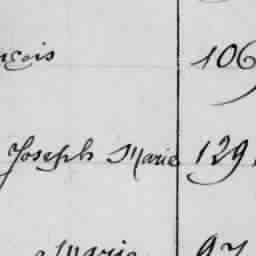 çois 106
Joseph Marie 129
Marie 97